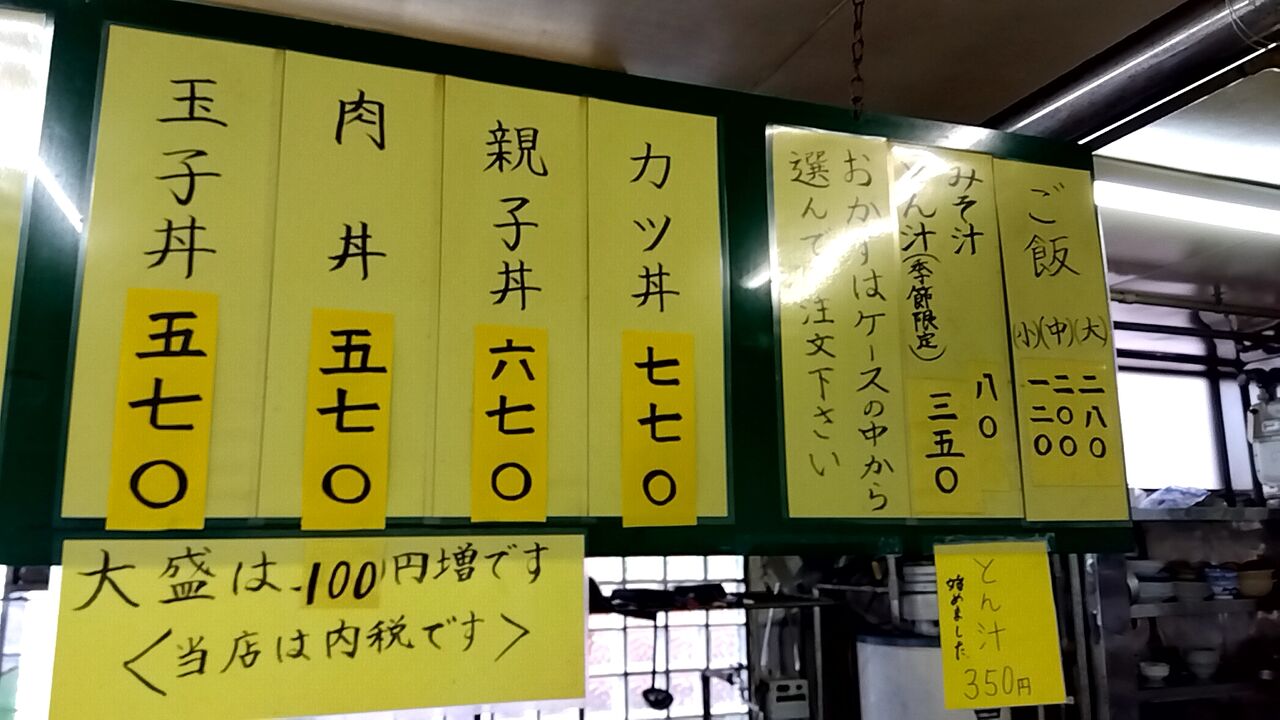 ご飯
(小)(中)(大)
二八〇
二〇〇
一二〇
みそ汁 八〇
とん汁(季節限定) 三五〇
おかずはケースの中から
選んでご注文下さい
カツ丼 七七〇
親子丼 六七〇
肉丼 五七〇
玉子丼 五七〇
大盛は100円増です
<当店は内税です>
とん汁
始めました
350円